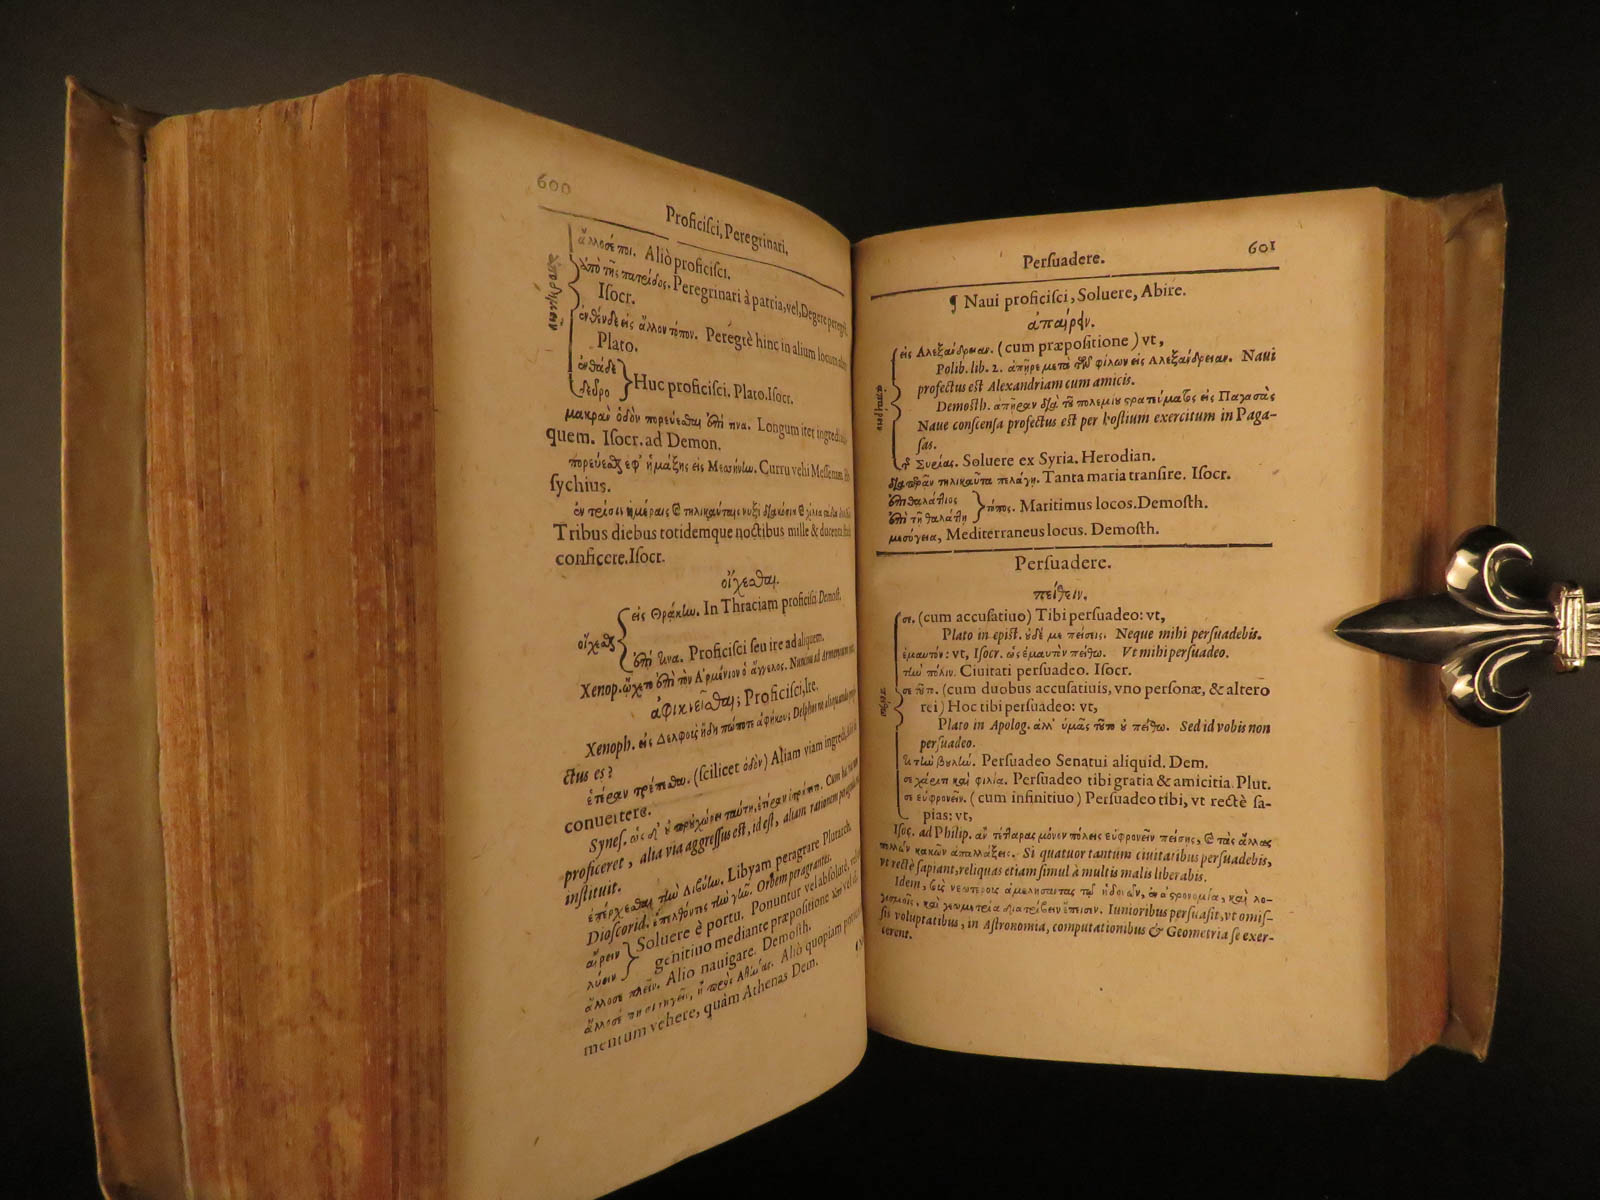 600
Proficiſci, Peregrinari.
ἄλλοσέ ποι. Aliò proficiſci.
ἀπὸ τῆς πατρίδος. Peregrinari à patria, vel, Degere
Iſocr.
ἐνθένδε εἰς ἄλλον τόπον. Peregrè hinc in alium locum
Plato.
ἐνθάδε
δεῦρο
Huc proficiſci. Plato. Iſocr.
μακρὰν ὁδὸν πορεύεσθαι ἐπί τινα. Longum iter
quem. Iſocr. ad Demon.
πορεύεσθαι ἐφ' ἁμάξης εἰς Μεσσήνην. Curru vehi
ſychius.
ἐν τρισὶν ἡμέραις καὶ τηλικαύταις νυξὶ
Tribus diebus totidemque noctibus mille & ducenta
conficere. Iſocr.
οἴχεσθαι.
οἴχεσθαι
εἰς Θράκην. In Thraciam proficiſci Demoſt.
ἐπί τινα. Proficiſci ſeu ire ad aliquem.
Xenop. ᾤχετο ἐπὶ τὸν Ἀρμένιον ὁ ἄγγελος.
ἀφικνεῖσθαι; Proficiſci, Ire.
Xenoph. εἰς Δελφοὺς ἤδη πώποτε ἀφίκου;
ctus es?
ἑτέραν τρέπεσθαι. (ſcilicet ὁδὸν) Aliam viam
conuertere.
Syneſ.
proficeret, alia via aggreſſus eſt, id eſt, aliam rationem
inſtituit.
ἐπέρχεσθαι τὴν Λιβύην. Libyam peragrare Plutarch.
Dioſcorid. ἐπελθόντες τὴν γῆν. Orbem peragrantes.
αἴρειν
λύειν
Soluere è portu. Ponuntur vel abſolutè,
genitiuo mediante præpoſitione
ἄλλοσε πλεῖν. Alio nauigare. Demoſth.
Aliò quopiam
mentum vehere, quàm Athenas Dem.
Perſuadere.
601
¶ Naui proficiſci, Soluere, Abire.
ἀπαίρειν.
εἰς Ἀλεξάνδρειαν. (cum præpoſitione) vt,
Polib. lib. 2. ἀπῆρε μετὰ τῶν φίλων εἰς Ἀλεξάνδρειαν. Naui
profectus eſt Alexandriam cum amicis.
Demoſth. ἀπῆραν διὰ τοῦ πολεμίου στρατεύματος εἰς Παγασὰς
Naue conſcenſa profectus eſt per hoſtium exercitum in Paga-
ſas.
ἐκ Συρίας. Soluere ex Syria. Herodian.
διαπερᾶν τηλικαῦτα πελάγη. Tanta maria tranſire. Iſocr.
ἐπιθαλάττιος
ἐπὶ τῇ θαλάττῃ
τόπος. Maritimus locos. Demoſth.
μεσόγεια, Mediterraneus locus. Demoſth.
Perſuadere.
πείθειν.
σε. (cum accuſatiuo) Tibi perſuadeo: vt,
Plato in epiſt. οὐδέ με πείσεις. Neque mihi perſuadebis.
ἐμαυτόν: vt, Iſocr. ὡς ἐμαυτὸν πείθω. Vt mihi perſuadeo.
τὴν πόλιν. Ciuitati perſuadeo. Iſocr.
(cum duobus accuſatiuis, vno perſonæ, & altero
rei) Hoc tibi perſuadeo: vt,
Plato in Apolog. ἀλλ' ὑμᾶς τοῦτο οὐ πείθω. Sed id vobis non
perſuadeo.
τι τὴν βουλήν. Perſuadeo Senatui aliquid. Dem.
σε χάριτι καὶ φιλίᾳ. Perſuadeo tibi gratia & amicitia. Plut.
σε εὐφρονεῖν. (cum infinitiuo) Perſuadeo tibi, vt rectè ſa-
pias: vt,
Iſoc. ad Philip. ἂν τέτταρας μόνον πόλεις εὐφρονεῖν πείσῃς, καὶ τὰς ἄλλας
πολλῶν κακῶν ἀπαλλάξεις. Si quatuor tantùm ciuitatibus perſuadebis,
vt rectè ſapiant, reliquas etiam ſimul à multis malis liberabis.
Idem, τοὺς νεωτέρους ἀμελήσαντας τῶν ἡδονῶν, ἐν ἀστρονομίᾳ, καὶ λο-
γισμοῖς, καὶ γεωμετρίᾳ διατρίβειν ἔπεισεν. Iunioribus perſuaſit, vt omiſ-
ſis voluptatibus, in Aſtronomia, computationibus & Geometria ſe exer-
cerent.